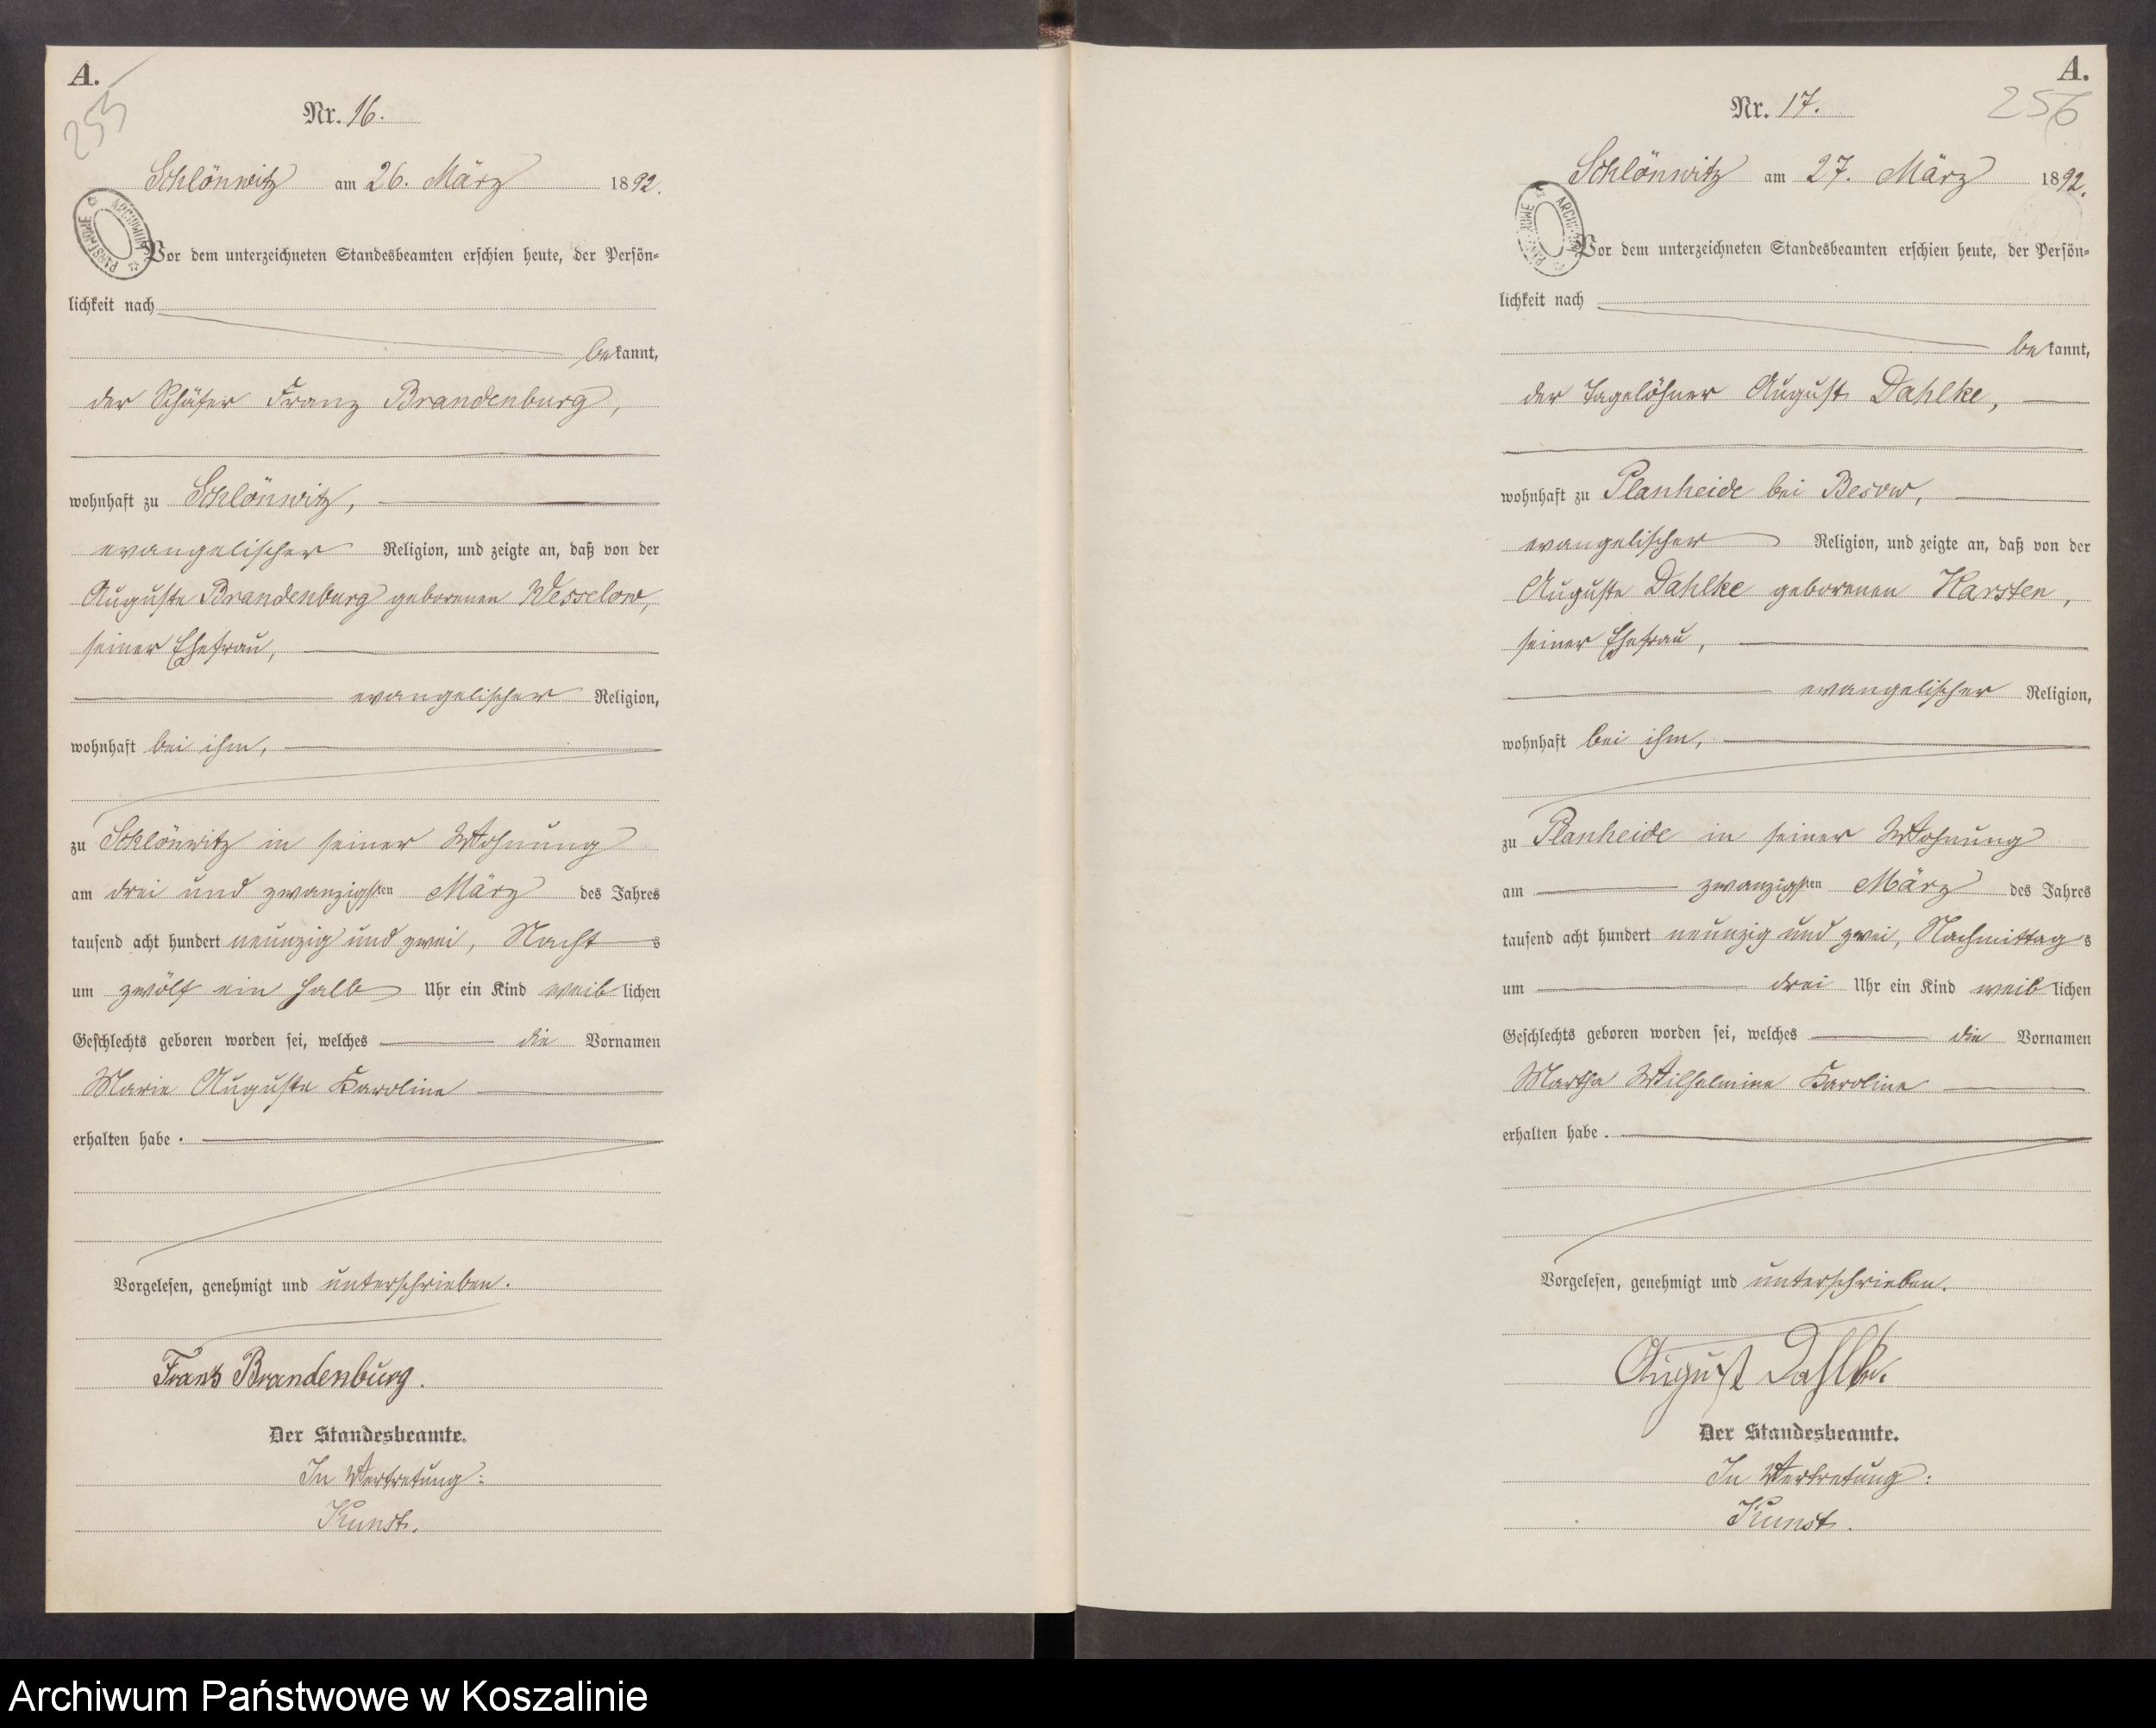 A.
255
Nr. 16.
Schlönwitz am 26. März 1892.
ARCHIWUM PAŃSTWOWE
Vor dem unterzeichneten Standesbeamten erschien heute, der Persön-
lichkeit nach
bekannt,
der Schäfer Franz Brandenburg,
wohnhaft zu Schlönwitz,
evangelischer Religion, und zeigte an, daß von der
Auguste Brandenburg geborenen Wesselow,
seiner Ehefrau,
evangelischer Religion,
wohnhaft bei ihm,
zu Schlönwitz in seiner Wohnung
am drei und zwanzigsten März des Jahres
tausend acht hundert neunzig und zwei, Nachts
um zwölf ein halb Uhr ein Kind weiblichen
Geschlechts geboren worden sei, welches die Vornamen
Marie Auguste Karoline
erhalten habe.
Vorgelesen, genehmigt und unterschrieben.
Franz Brandenburg.
Der Standesbeamte.
In Vertretung:
Kunst.
A.
256
Nr. 17.
Schlönwitz am 27. März 1892.
Vor dem unterzeichneten Standesbeamten erschien heute, der Persön-
lichkeit nach
bekannt,
der Tagelöhner August Dahlke,
wohnhaft zu Planheide bei Besow,
evangelischer Religion, und zeigte an, daß von der
Auguste Dahlke geborenen Karsten,
seiner Ehefrau,
evangelischer Religion,
wohnhaft bei ihm,
zu Planheide in seiner Wohnung
am zwanzigsten März des Jahres
tausend acht hundert neunzig und zwei, Nachmittags
um drei Uhr ein Kind weiblichen
Geschlechts geboren worden sei, welches die Vornamen
Martha Wilhelmine Karoline
erhalten habe.
Vorgelesen, genehmigt und unterschrieben.
August Dahlke.
Der Standesbeamte.
In Vertretung:
Kunst.
Archiwum Państwowe w Koszalinie